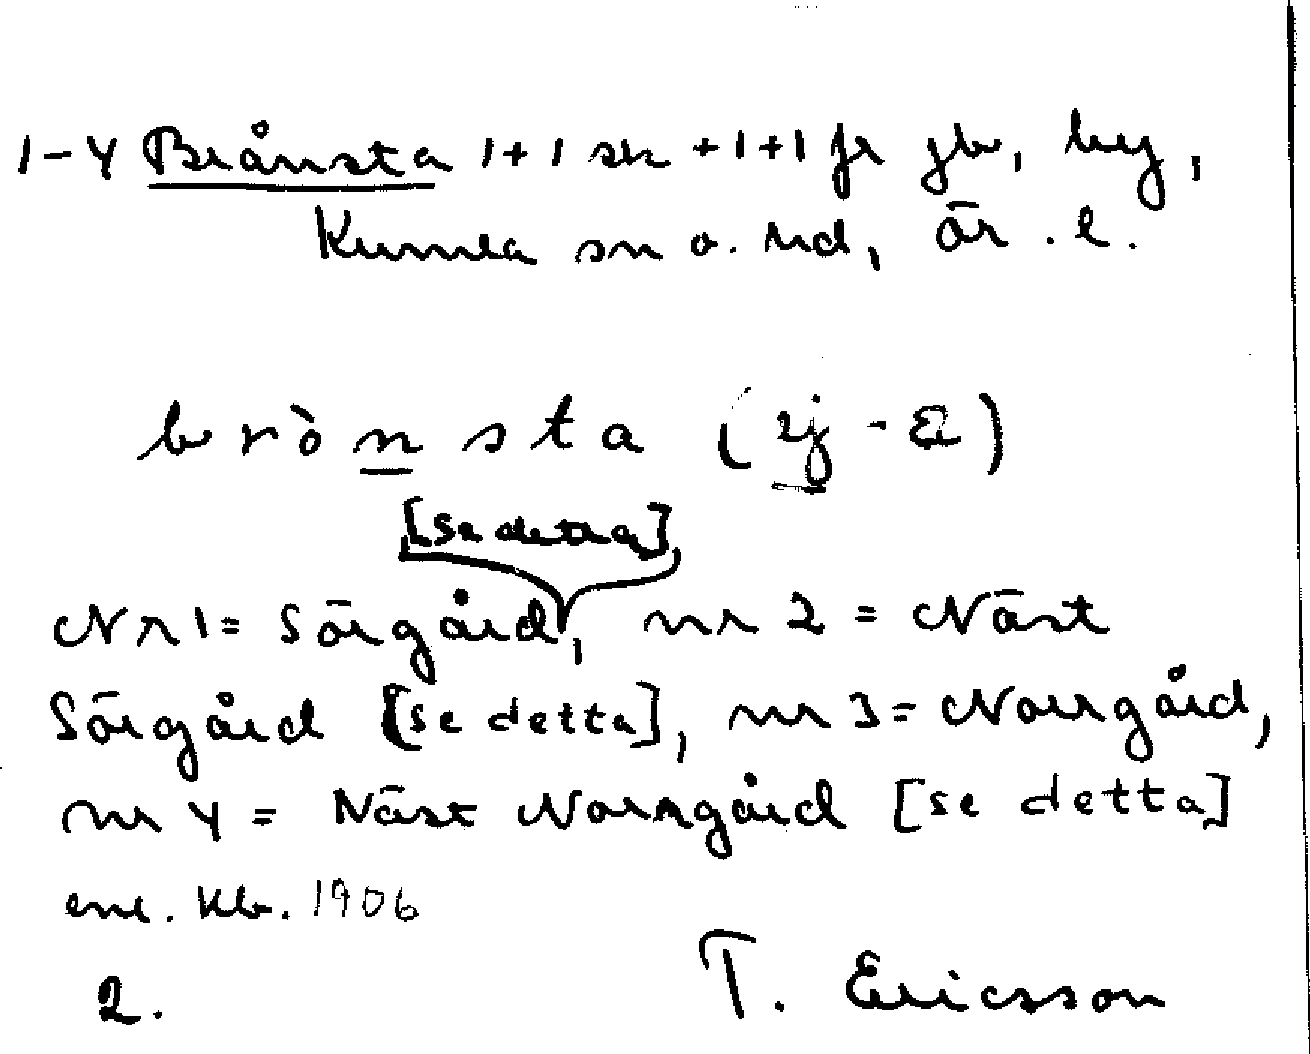 1-4 Brånsta 1+1 sk +1+1 fr jb, by,
Kumla sn o. hd, Ör. l.
bròn sta (ij-a)
[se detta]
Nr 1= Sörgård, nr 2 = Näst
Sörgård [se detta], nr 3= Norrgård,
nr 4 = Näst Norrgård [se detta]
enl. kb. 1906
2.
T. Ericsson